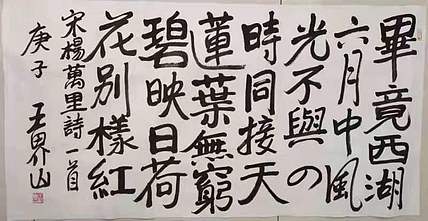 畢竟西湖
六月中風
光不與四
時同接天
蓮葉無窮
碧映日荷
花別樣紅
宋楊萬里詩一首
庚子 王界山